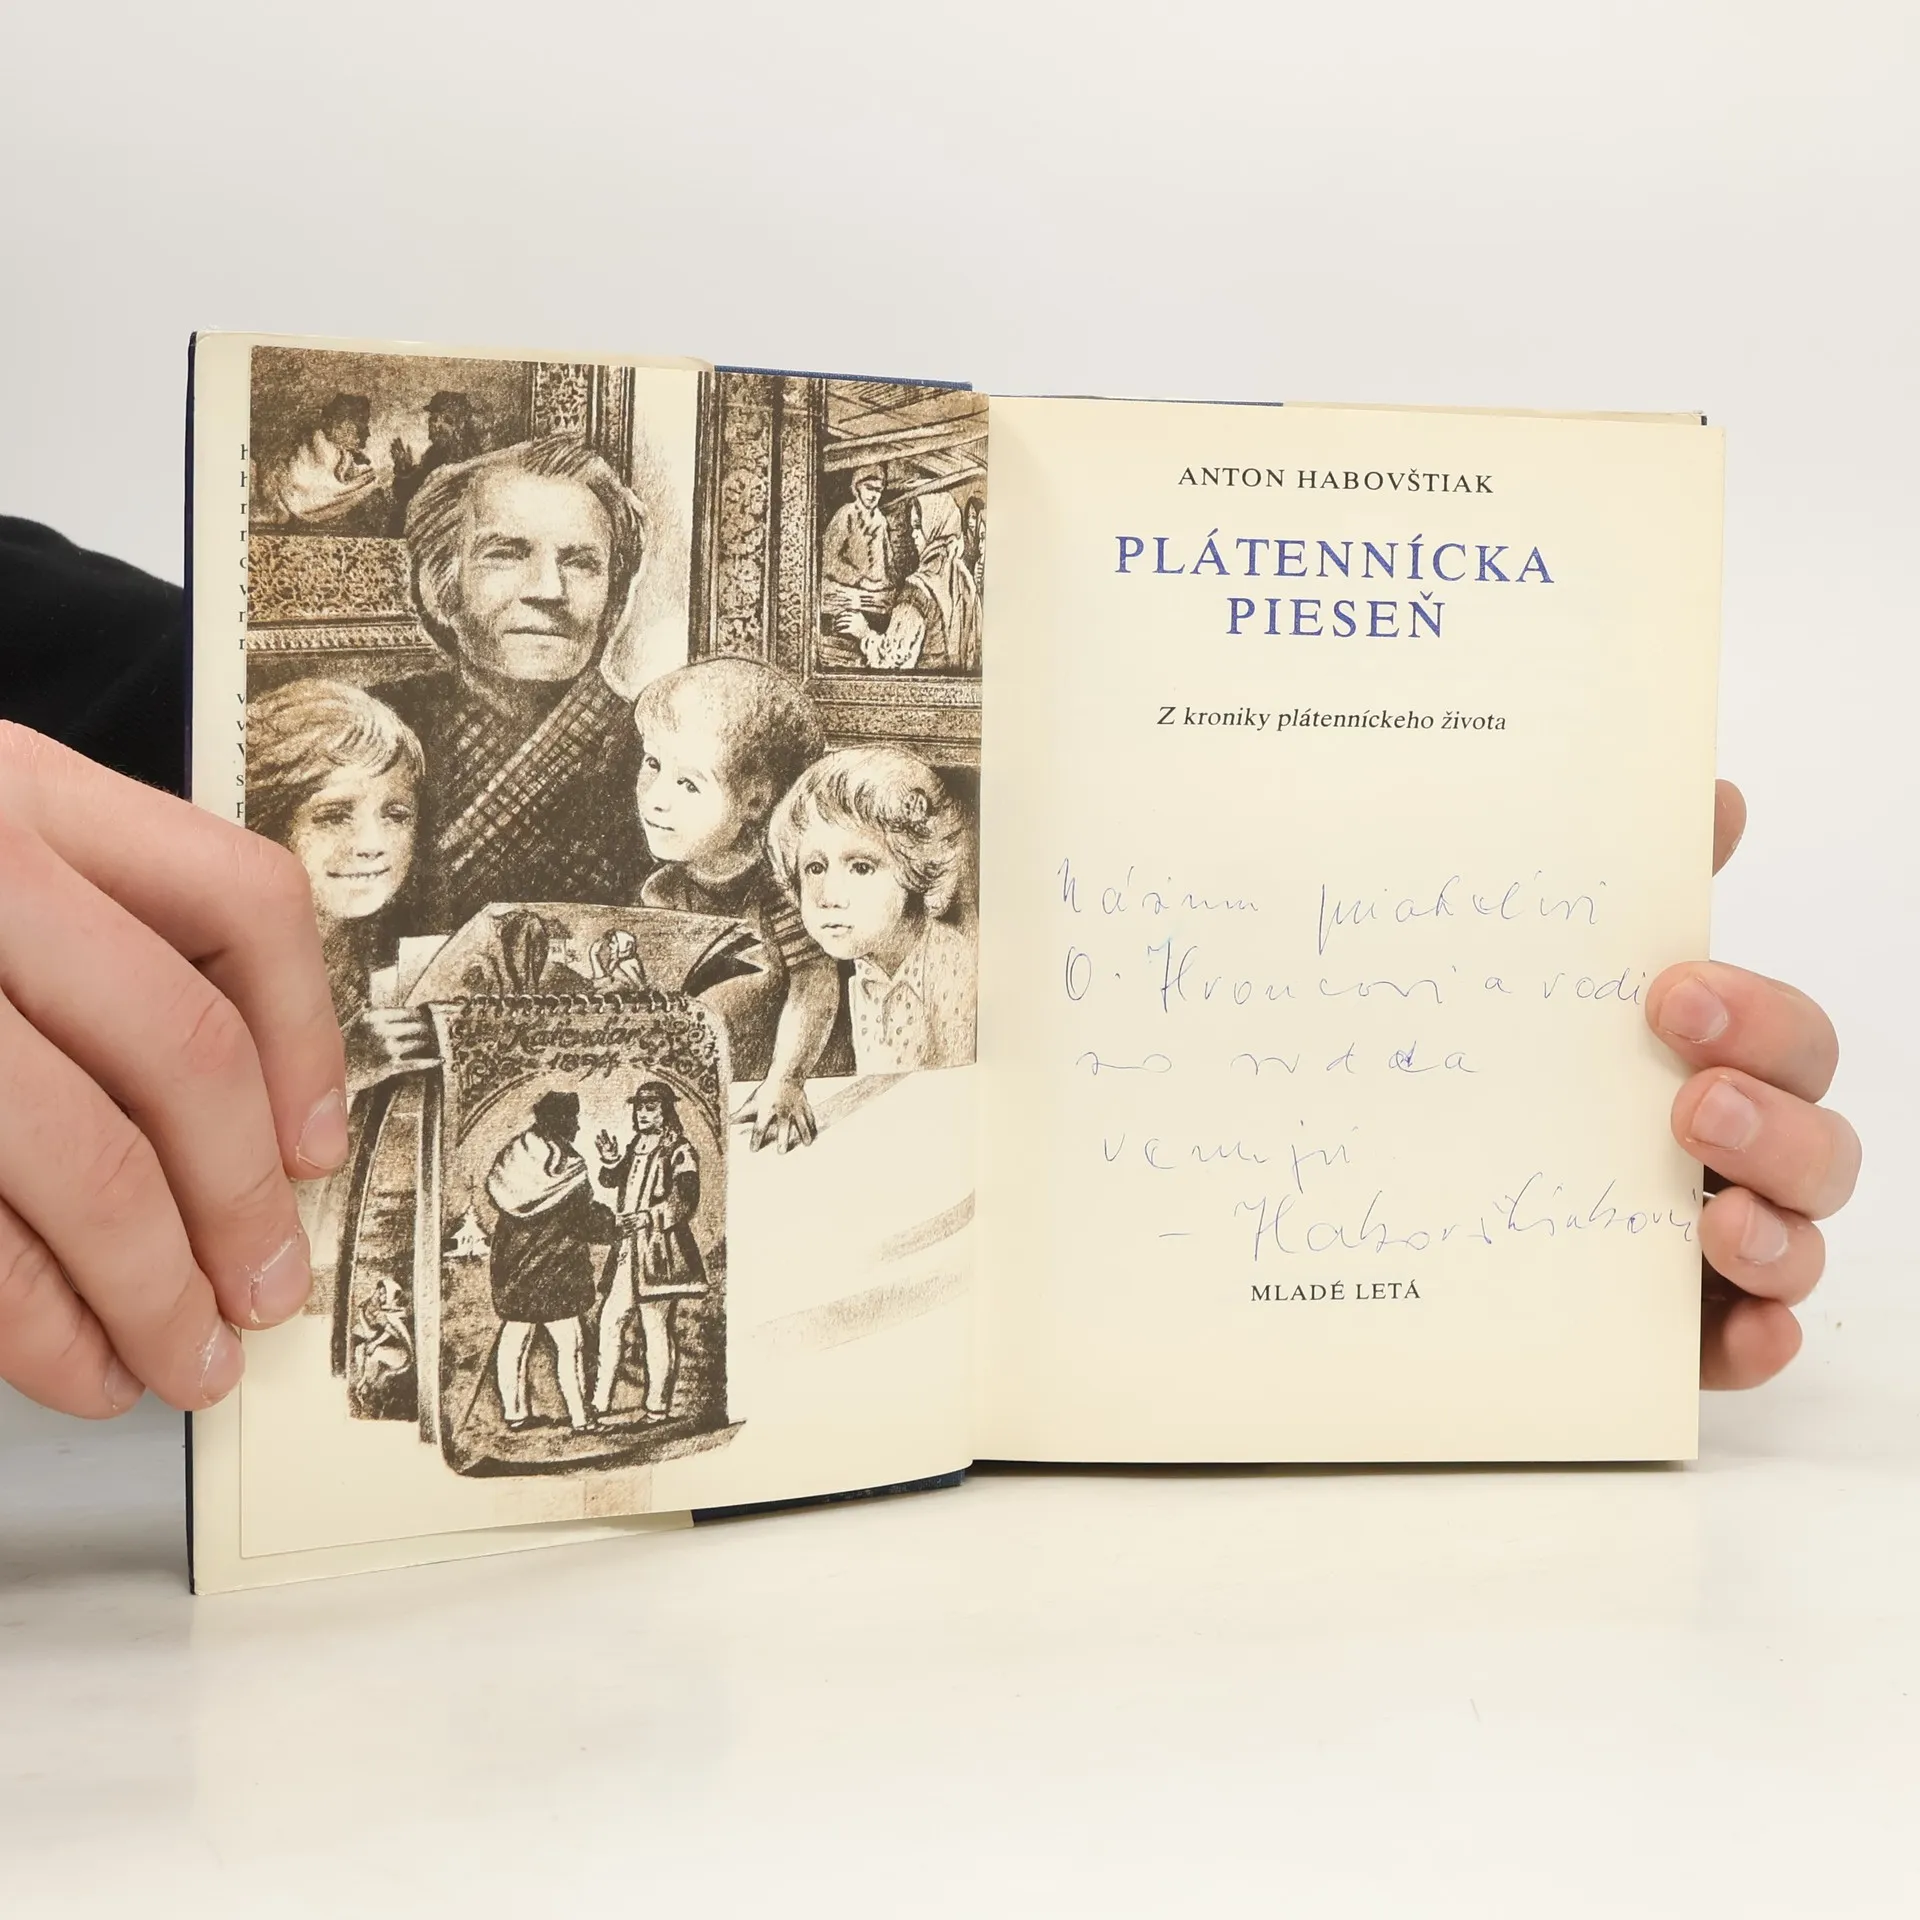 Kalendár
1894
ANTON HABOVŠTIAK
PLÁTENNÍCKA
PIESEŇ
Z kroniky plátenníckeho života
Nášmu priateľovi
O. Hroncovi a rodi
zo srdca
venujú
– Habovštiakovi
MLADÉ LETÁ